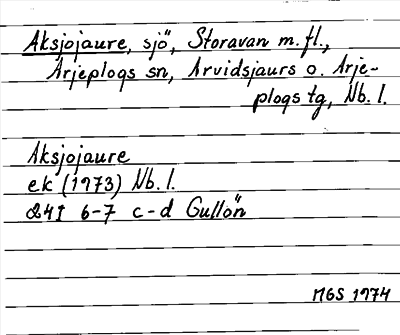 Aksjojaure, sjö, Storavan m.fl.,
Arjeplogs sn, Arvidsjaurs o. Arje-
plogs tg, Nb. l.
Aksjojaure
ek (1973) Nb. l.
24I 6-7 c-d Gullön
MGS 1974